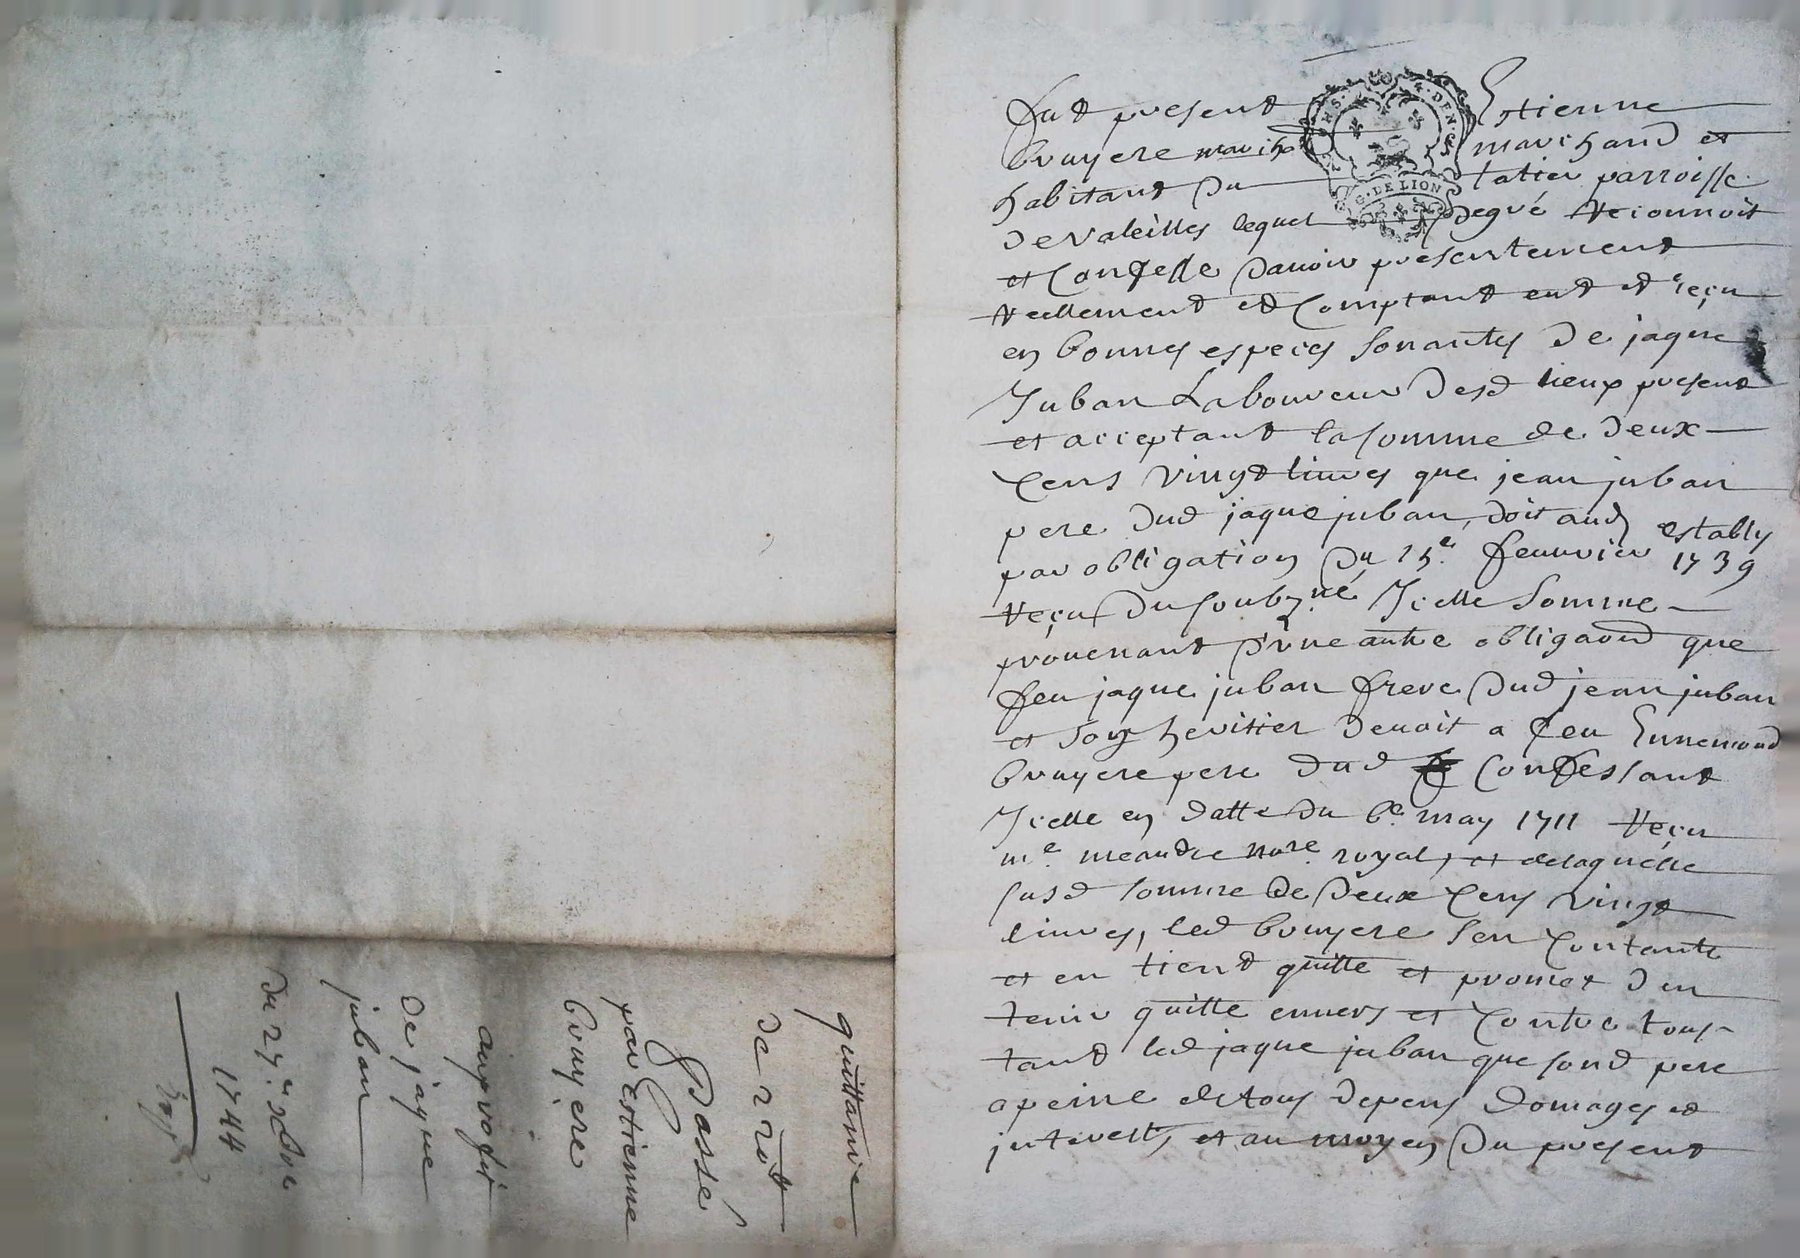 Fut present Estienne
bruyere march marchand et
habitant du latier parroisse
de valeilles lequel degré reconnoit
et confesse d'auoir presentement
reellement et comptant eut et reçu
en bonnes especes sonantes de jaque
Juban Laboureur desd lieux present
et acceptant la somme de deux
cens vingt liures que jean juban
pere dud jaque juban, doit aud estably
par obligation du 15e feurier 1739
reçu du soubzné Jcelle somme
prouenant d'une autre obligaond que
feu jaque juban frere dud jean juban
et son heritier deuoit a feu Ennemond
bruyere pere dud confessant
Jcelle en datte du 6e may 1711 reçu
me meandre nore royal, et de laquelle
susd somme de deux cens vingt
liures, led bruyere s'en contante
et en tient quitte et promet d'en
tenir quitte enuers et contre tous
tant led jaque juban que sond pere
a peine de tous depens domages et
jnterests, et au moyen du present
G. DE LION
quittance
de 220tt
Passé
par estienne
bruyere
au profit
de jaque
juban
du 27e xbre
1744